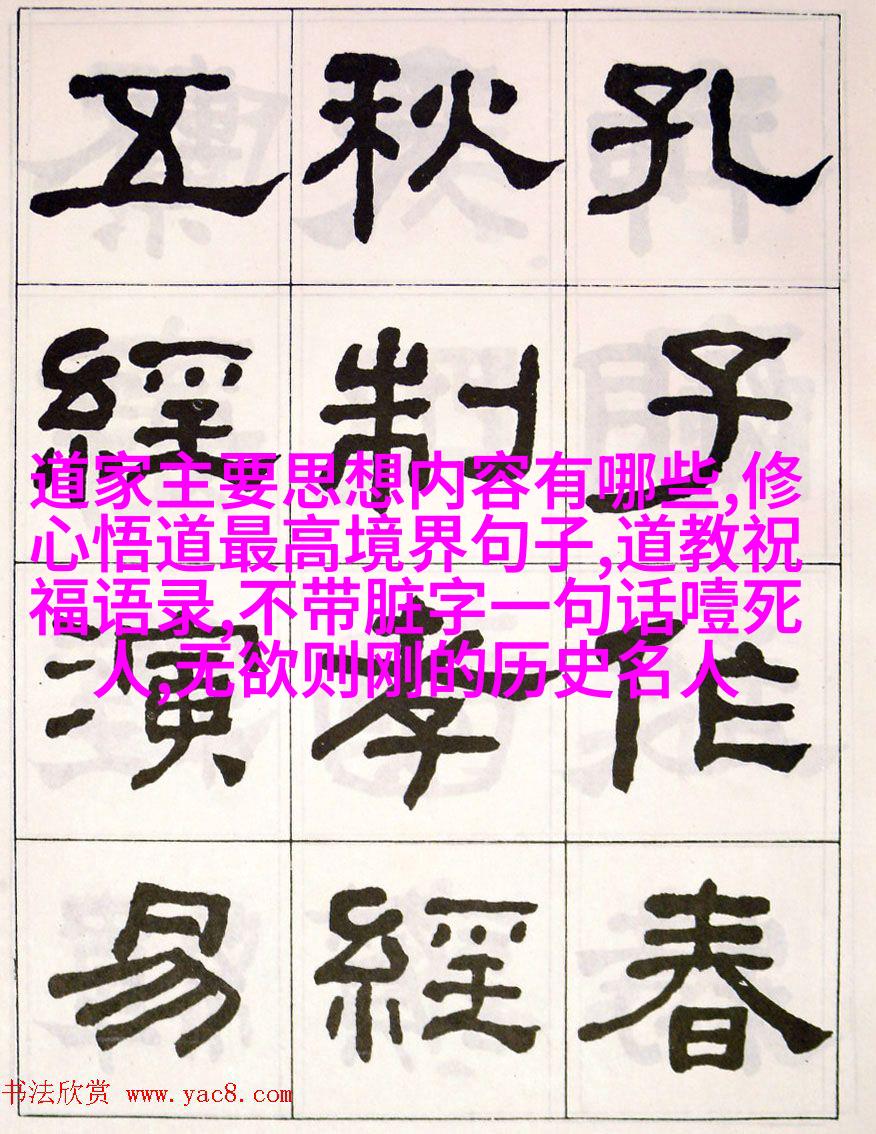 孔子作春
秋制孝經
五經演易
道家主要思想内容有哪些,修
心悟道最高境界句子,道教祝
福语录,不带脏字一句话噎死
人,无欲则刚的历史名人
书法欣赏 www.yac8.com